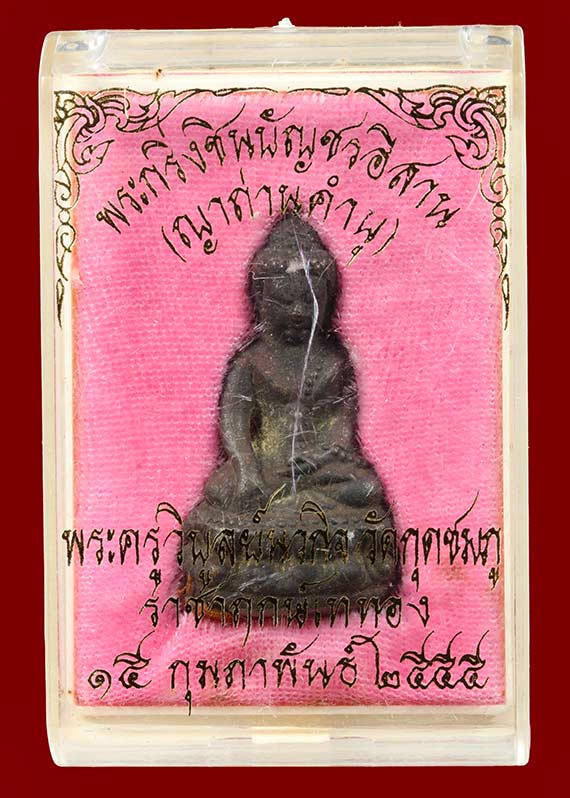 พระกริ่งชินบัญชรอีสาน
(ญาถ่านคำบุ)
พระครูวิบูลย์นวกิจ วัดกุดชมภู
ราชาฤกษ์เททอง
๑๕ กุมภาพันธ์ ๒๕๕๕